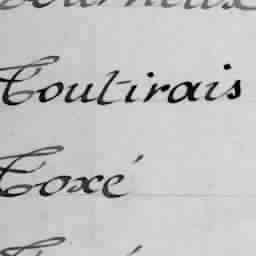 Toutirais
Toxé